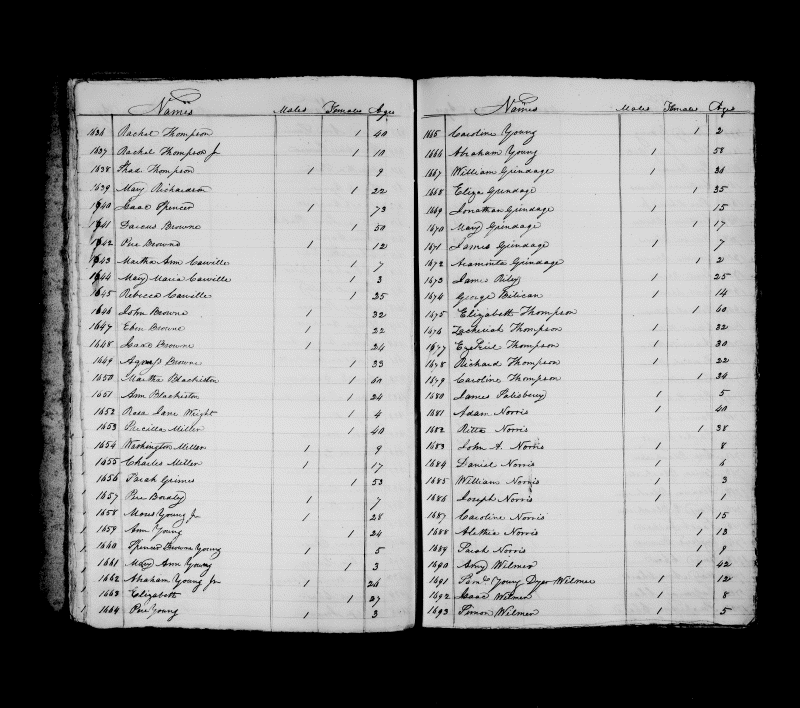 Names Males Females Ages
1636 Rachel Thompson 1 40
1637 Rachel Thompson Jr 1 10
1638 Thad. Thompson 1 9
1639 Mary Richardson 1 22
1640 Isaac Spencer 1 73
1641 Darcus Browne 1 50
1642 Pere Browne 1 12
1643 Martha Ann Carville 1 7
1644 Mary Maria Carville 1 3
1645 Rebecca Carville 1 25
1646 John Browne 1 32
1647 Eben Browne 1 22
1648 Isaac Browne 1 24
1649 Agnes Browne 1 33
1650 Martha Blackiston 1 60
1651 Ann Blackiston 1 24
1652 Rosa Jane Wright 1 4
1653 Priscilla Miller 1 40
1654 Washington Miller 1 9
1655 Charles Miller 1 17
1656 Sarah Grimes 1 53
1657 Pere 1 7
1658 Moses Young Jr 1 28
1659 Ann Young 1 24
1660 Spencer Browne Young 1 5
1661 Mary Ann Young 1 3
1662 Abraham Young Jr 1 26
1663 Elizabeth 1 27
1664 Pere Young 1 3
Names Males Females Ages
1665 Caroline Young 1 2
1666 Abraham Young 1 58
1667 William Grindage 1 36
1668 Eliza Grindage 1 35
1669 Jonathan Grindage 1 15
1670 Mary Grindage 1 17
1671 James Grindage 1 7
1672 Araminta Grindage 1 2
1673 James Riley 1 25
1674 George 1 14
1675 Elizabeth Thompson 1 60
1676 Zacheriah Thompson 1 32
1677 Ezekiel Thompson 1 30
1678 Richard Thompson 1 22
1679 Caroline Thompson 1 34
1680 James Salisbery 1 5
1681 Adam Norris 1 40
1682 Ritta Norris 1 38
1683 John A. Norris 1 8
1684 Daniel Norris 1 6
1685 William Norris 1 3
1686 Joseph Norris 1 1
1687 Caroline Norris 1 15
1688 Alethia Norris 1 13
1689 Sarah Norris 1 9
1690 Amy Wilmer 1 42
1691 Saml Young Dyer Wilmer 1 12
1692 Isaac Wilmer 1 8
1693 Simon Wilmer 1 5